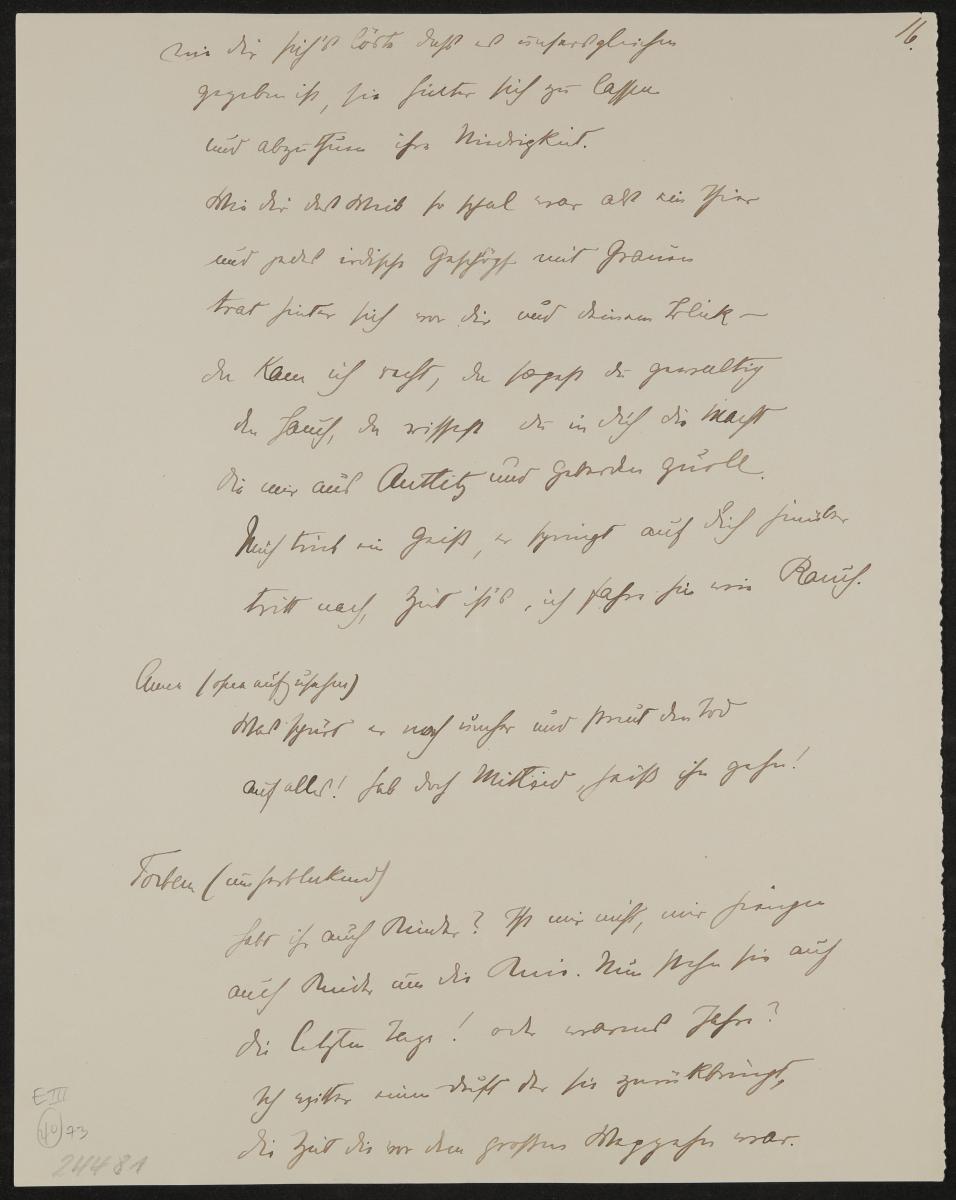 16.
wie dir sich's löste dass es unsersgleichen
gegeben ist, sie hinter sich zu lassen
und abzuthuen ihre Niedrigkeit.
Wie dir das Weib so schal war als ein Thier
und jedes irdische Geschöpf mit Grausen
trat hinter sich vor dir und deinem Blick –
da kam ich recht, da sogest du gewaltig
den Hauch, da rissest du in dich die Macht
die mir aus Antlitz und Geberden quoll.
Mich trieb ein Geist, er springt auf dich hinüber
tritt nach, Zeit ist's, ich fahre hin wie Rauch.
Amen (ohne aufzusehen)
Was spürt er noch umher und streut den Tod
auf alles! hab doch Mitleid, heiss ihn gehn!
Torbern (umherblickend)
Habt ihr auch Kinder? Ist mir nicht, mir hiengen
auch Kinder um die Knie. Nun stehn sie auf
die letzten Tage! oder warens Jahre?
Ich witter einen Duft der sie zurückbringt,
die Zeit die vor dem grossen Weggehn war.
E III
40 73
24481